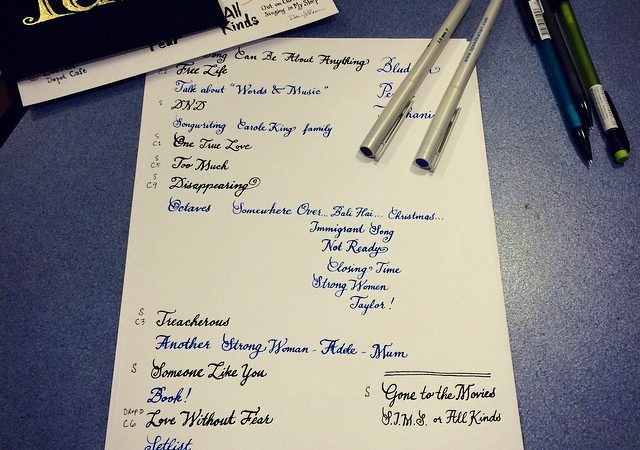 All
Kinds
Out on
Singing in My Sleep
Fear
Depot Cafe
Song Can Be About Anything
C2 Free Life
Talk about "Words & Music"
S DND
Songwriting Carole King family
S C1 One True Love
S C5 Too Much
S C9 Disappearing
Octaves Somewhere Over... Bali Hai... Christmas...
Immigrant Song
Not Ready
Closing Time
Strong Women
Taylor!
S C3 Treacherous
Another Strong Woman - Adele - Mum
S Someone Like You
Book!
S Gone to the Movies
DROP D C6 Love Without Fear
S.I.M.S. or All Kinds
Setlist